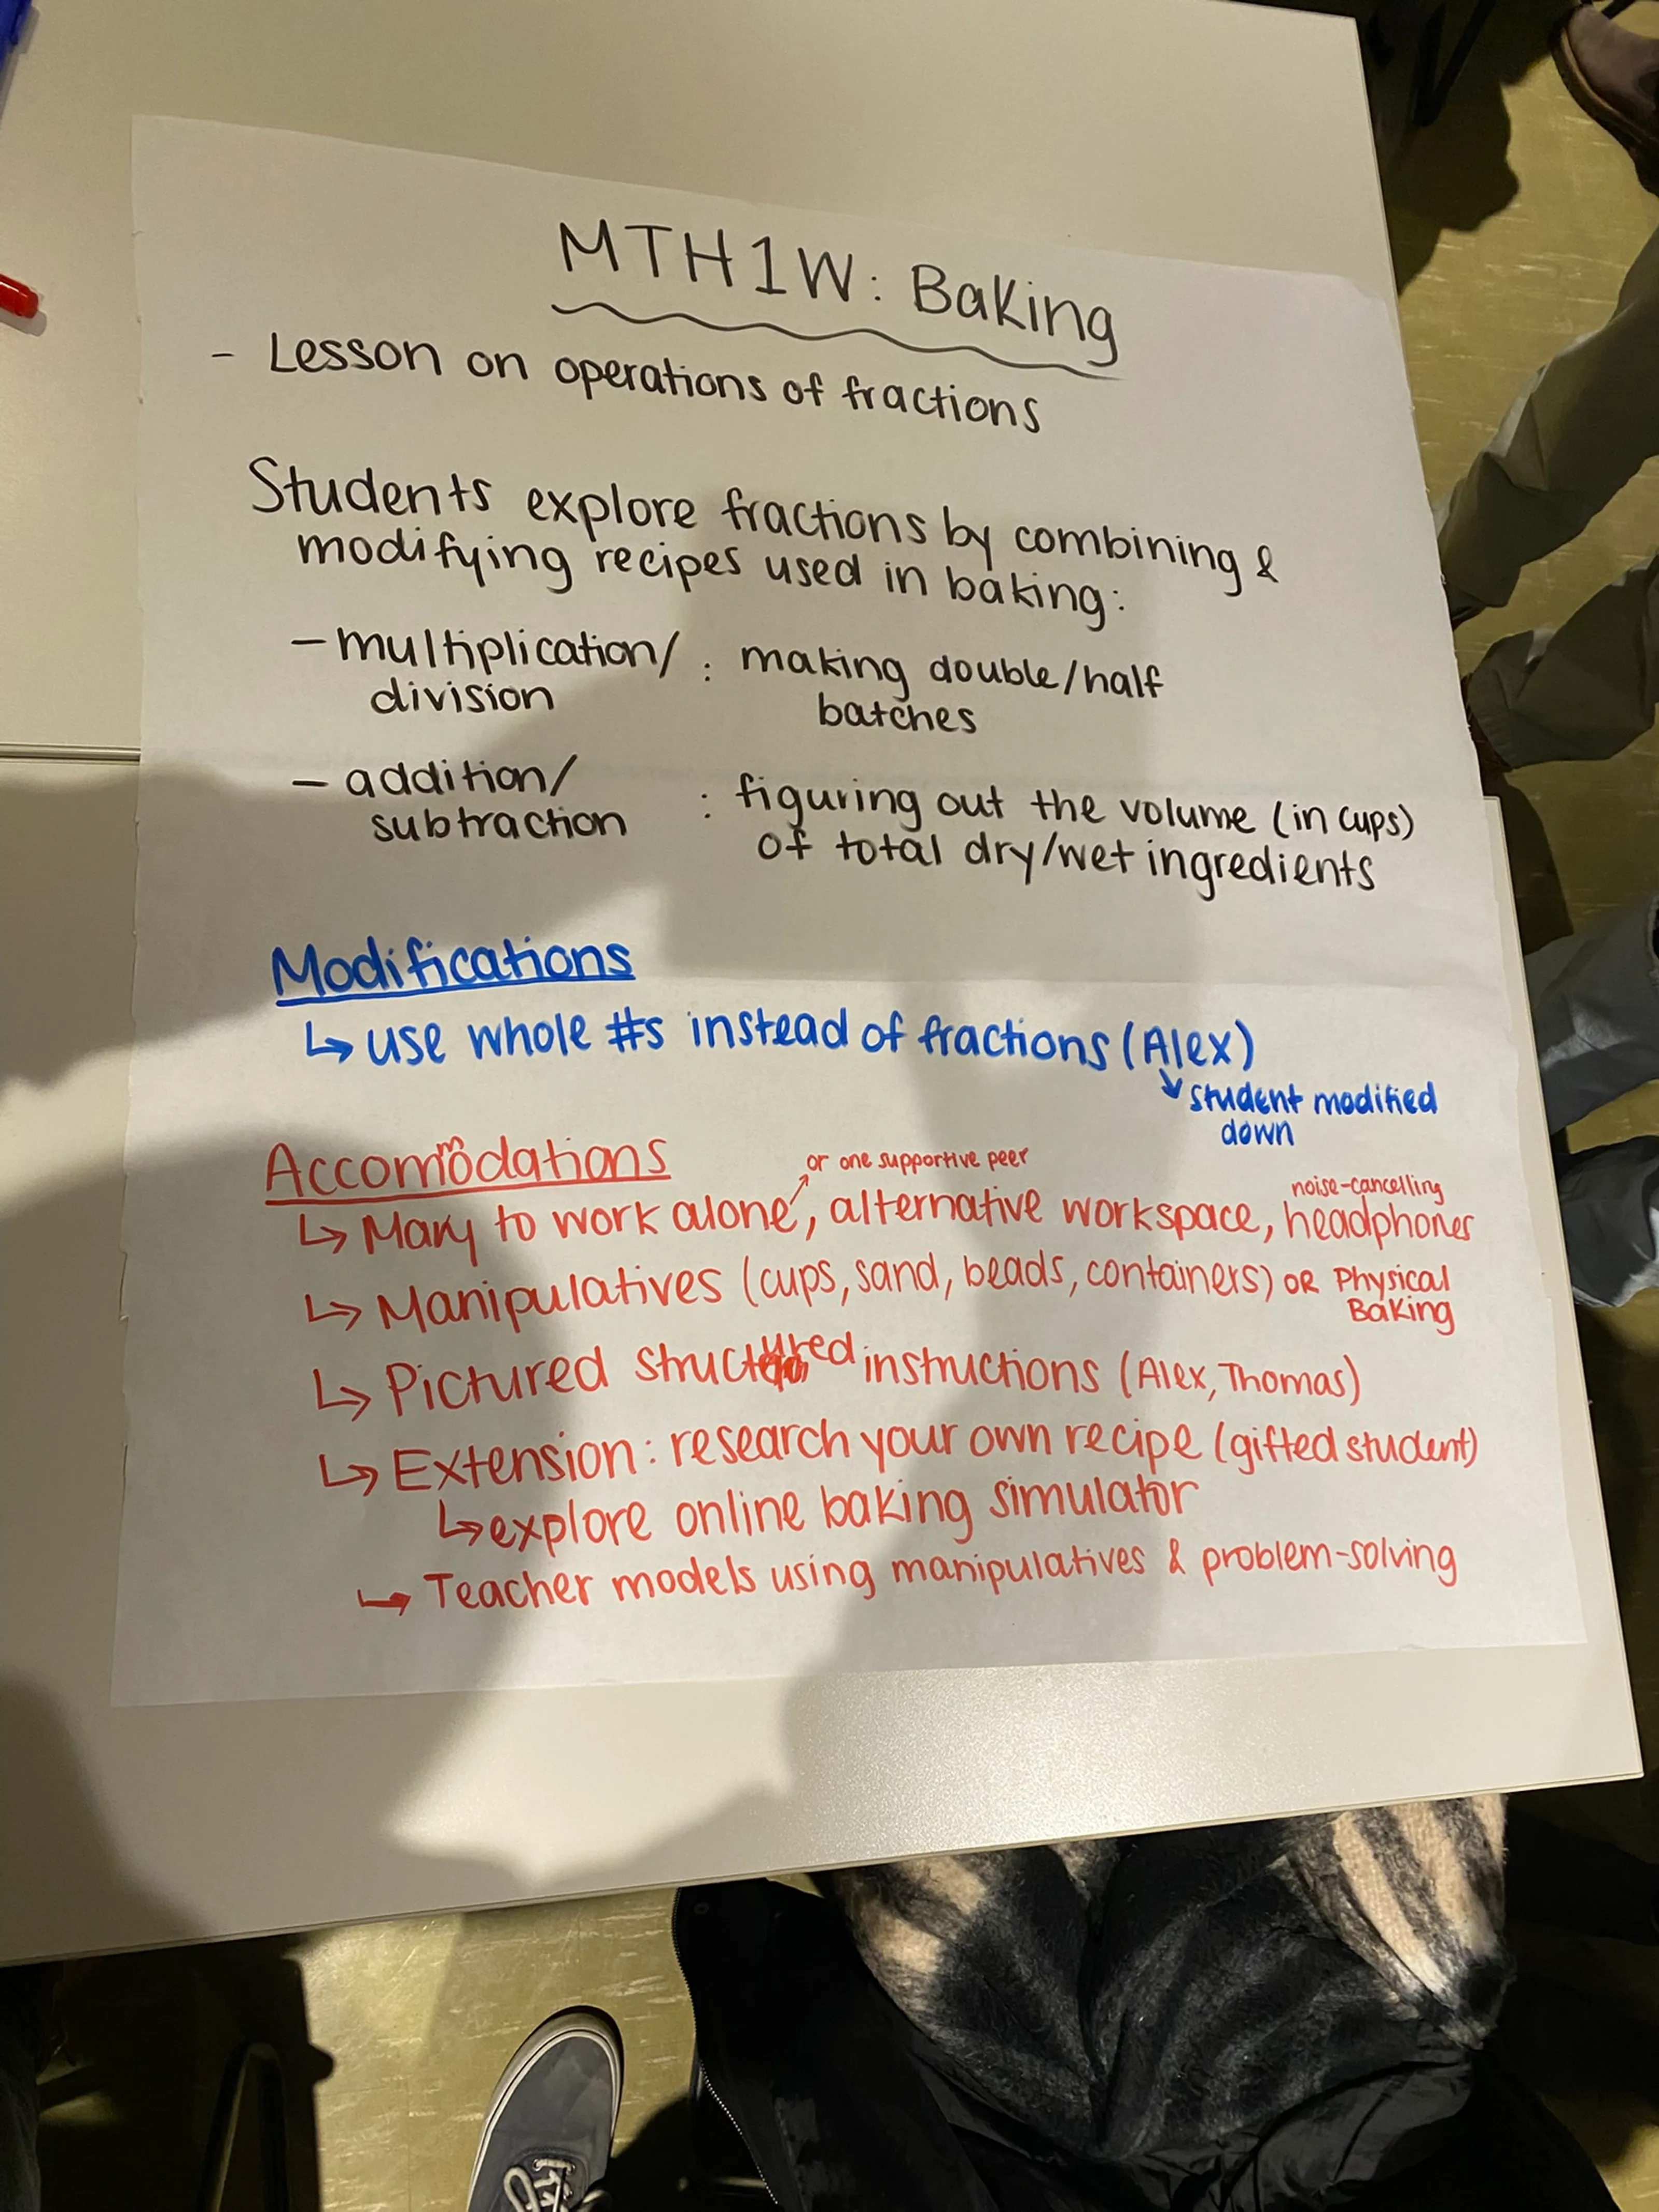 MTH1W: Baking
- Lesson on operations of fractions
Students explore fractions by combining &
modifying recipes used in baking:
- multiplication/ : making double/half
division batches
- addition/ : figuring out the volume (in cups)
subtraction of total dry/wet ingredients
Modifications
↳ use whole #s instead of fractions (Alex)
↘ student modified
down
Accommodations
or one supportive peer
noise-cancelling
↳ Mary to work alone, alternative workspace, headphones
↳ Manipulatives (cups, sand, beads, containers) OR Physical
Baking
↳ Pictured structured instructions (Alex, Thomas)
↳ Extension: research your own recipe (gifted student)
↳ explore online baking simulator
↳ Teacher models using manipulatives & problem-solving